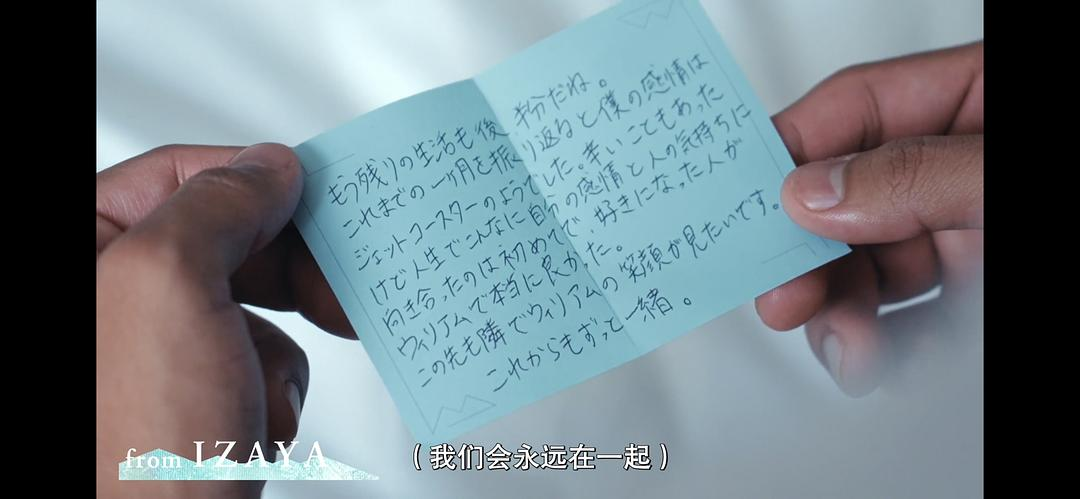 もう残りの生活も後半分だね。
これまでの一ヶ月を振り返ると僕の感情は
ジェットコースターのようでした。辛いこともあった
けど人生でこんなに自分の感情と人の気持ちに
向き合ったのは初めてで、好きになった人が
ウィリアムで本当に良かった。
この先も隣でウィリアムの笑顔が見たいです。
これからもずっと一緒。
from IZAYA
(我们会永远在一起)